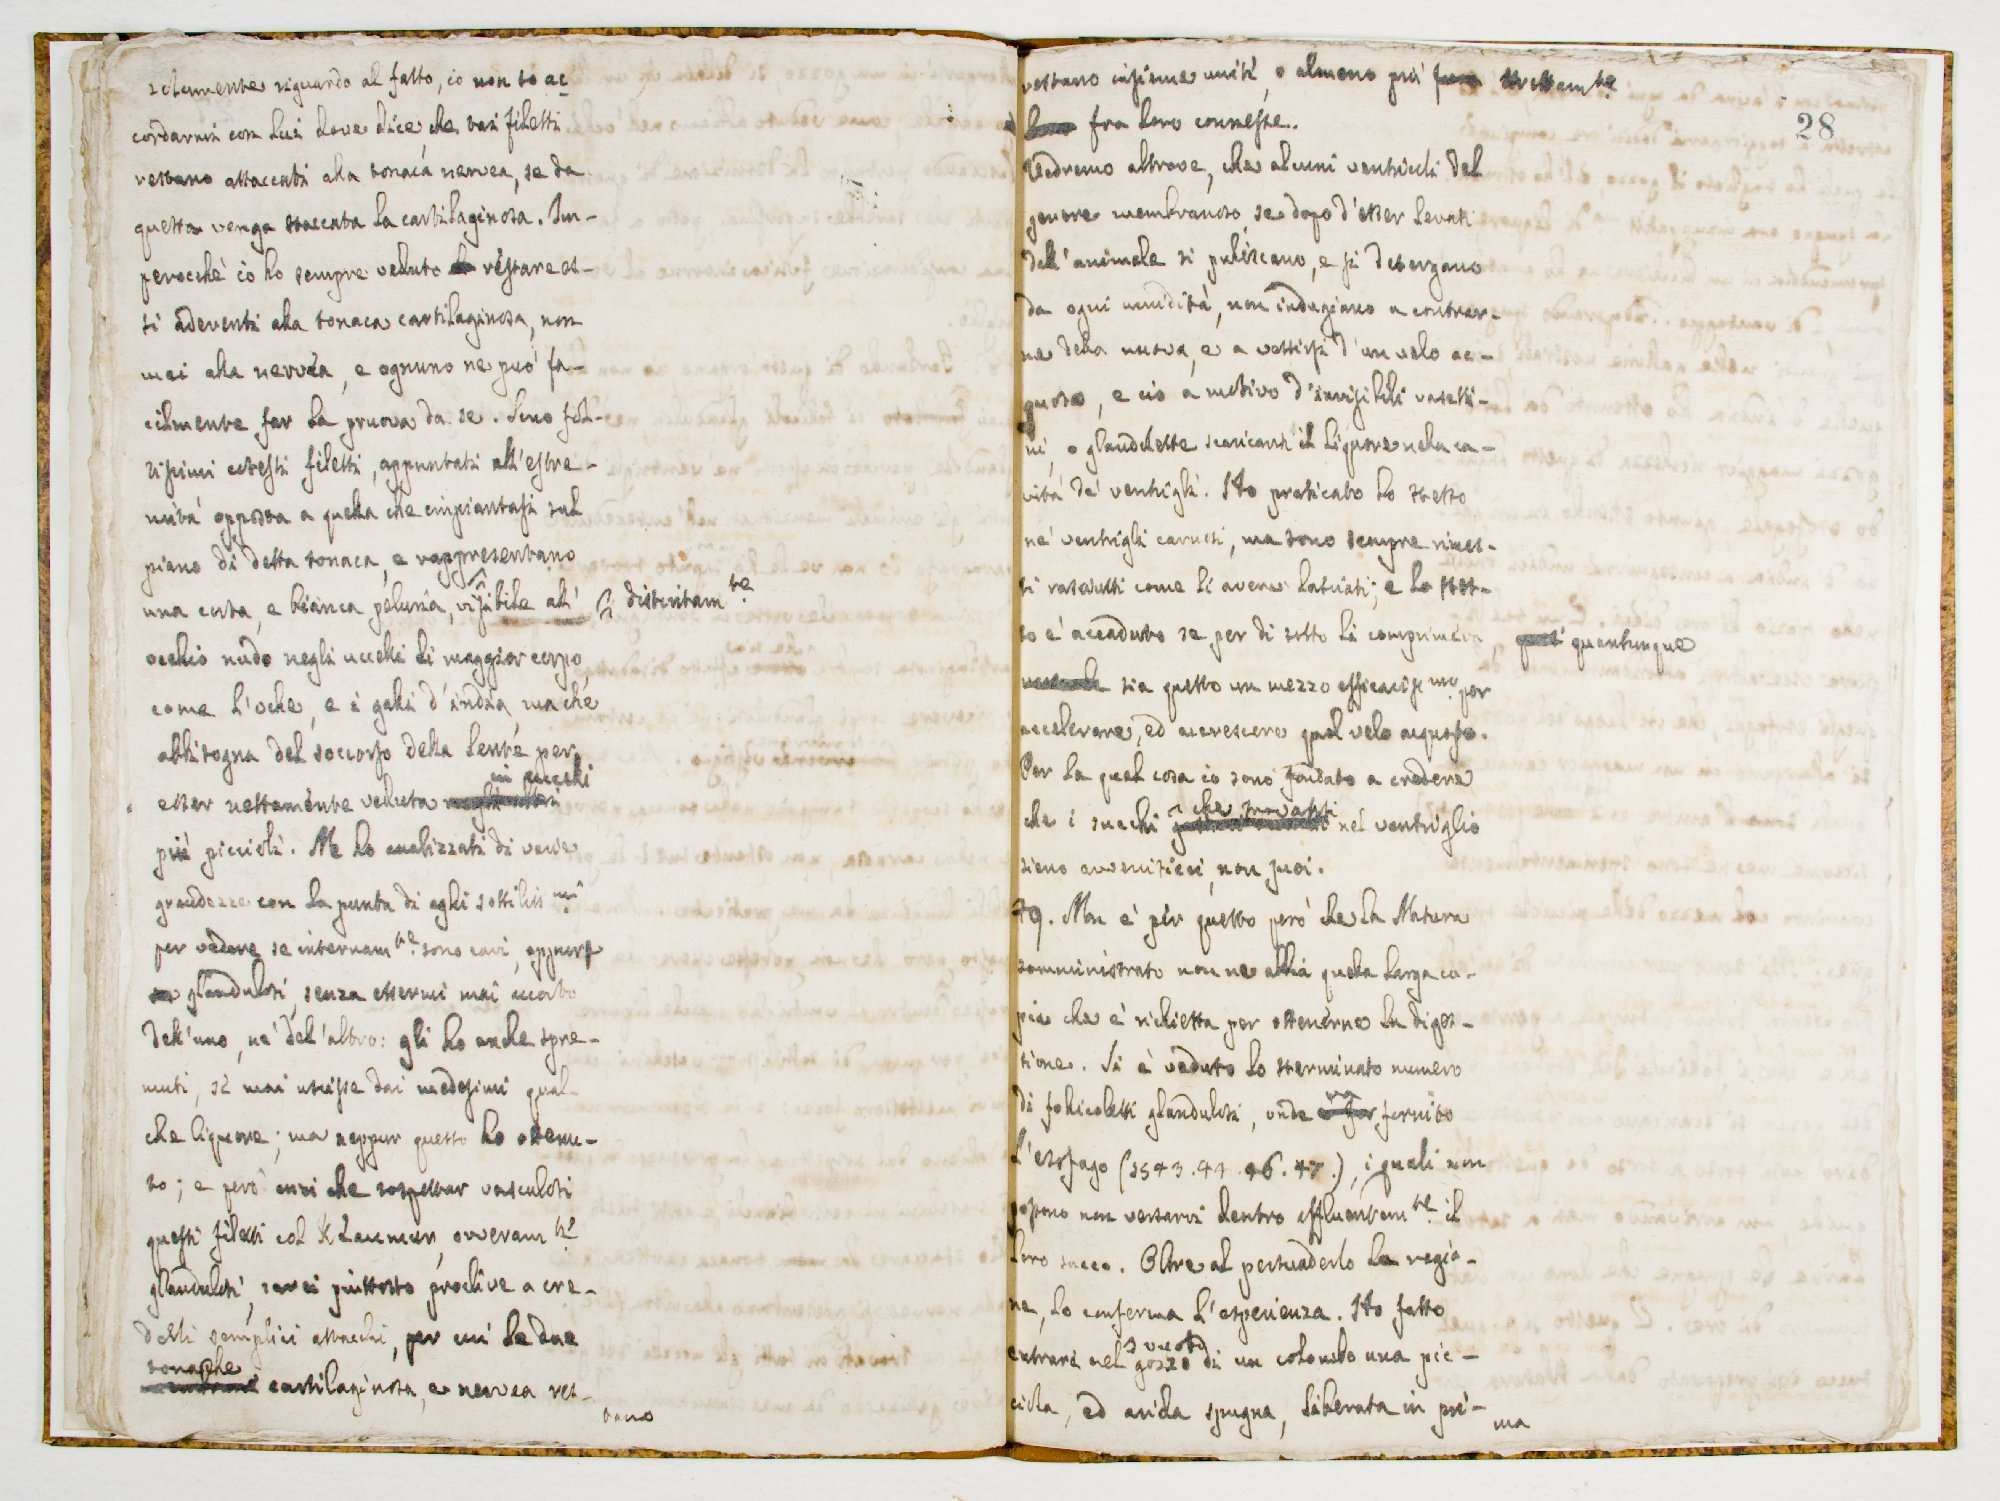 solamente riguardo al fatto, io non so ac
cordarmi con lui dove dice, che tai filetti
restano attaccati alla tonaca nervea, se da
questa venga staccata la cartilaginosa. Im-
perocchè io ho sempre veduto restare es-
si aderenti alla tonaca cartilaginosa, non
mai alla nervea, e ognuno ne può fa-
cilmente far la pruova da se. Sono fol-
tissimi cotesti filetti, appuntati all'estre-
mità opposta a quella che impiantasi sul
piano di detta tonaca, e rappresentano
una corta, e bianca peluria, visibile all'
distintam.te
occhio nudo negli uccelli di maggior corpo,
come l'oche, e i galli d'india, ma che
abbisogna del soccorso della lente per
in uccelli
esser nettamente veduta
più piccioli. Ne ho analizzati di varie
grandezze con la punta di aghi sottiliss.mi
per vedere se internam.te sono cavi, oppure
glandulosi, senza essermi mai accorto
dell'uno, nè dell'altro: gli ho anche spre-
muti, se mai uscisse dai medesimi qual-
che liquore; ma neppur questo ho ottenu-
to; e però anzi che sospettar vasculosi
questi filetti col, ovveram.te
glandulosi, sarei piuttosto proclive a cre-
derli semplici attacchi, per cui le due
tonache
cartilaginosa, e nervea res-
tano
28
restano insieme uniti, o almeno più strettam.te
fra loro connesse.
Vedremo altrove, che alcuni ventricoli del
genere membranoso, se dopo d'esser levati
dall'animale si puliscano, e si detergano
da ogni umidità, non indugiano a contrar-
ne della nuova, e a vestirsi d'un velo ac-
quoso, e ciò a motivo d'invisibili vasetti-
ni, o glandulette scaricanti il liquore nella ca-
vità de' ventrigli. Ho praticato lo stesso
ne' ventrigli carnosi, ma sono sempre rimas-
ti rasciutti come li aveva lasciati; e lo stes-
so è accaduto se per di sotto li comprimeva, quantunque
sia questo un mezzo efficaciss.mo per
accelerare, ed accrescere quel velo acquoso.
Per la qual cosa io sono portato a credere
che trovansi
che i succhi nel ventriglio
sieno avveniticci, non suoi.
79. Non è per questo però che la Natura
somministrato non ne abbia quella larga co-
pia che è richiesta per ottenerne la diges-
tione. Si è veduto lo sterminato numero
di follicoletti glandulosi, onde va fornito
l'esofago (§§ 43. 44. 46. 47.), i quali non
possono non versarvi dentro affluentem.te il
loro succo. Oltre al persuaderlo la ragio-
ne, lo conferma l'esperienza. Ho fatto
vuoto
entrare nel gozzo di un colombo una pic-
ciola, ed arida spugna, liberata in pri-
ma